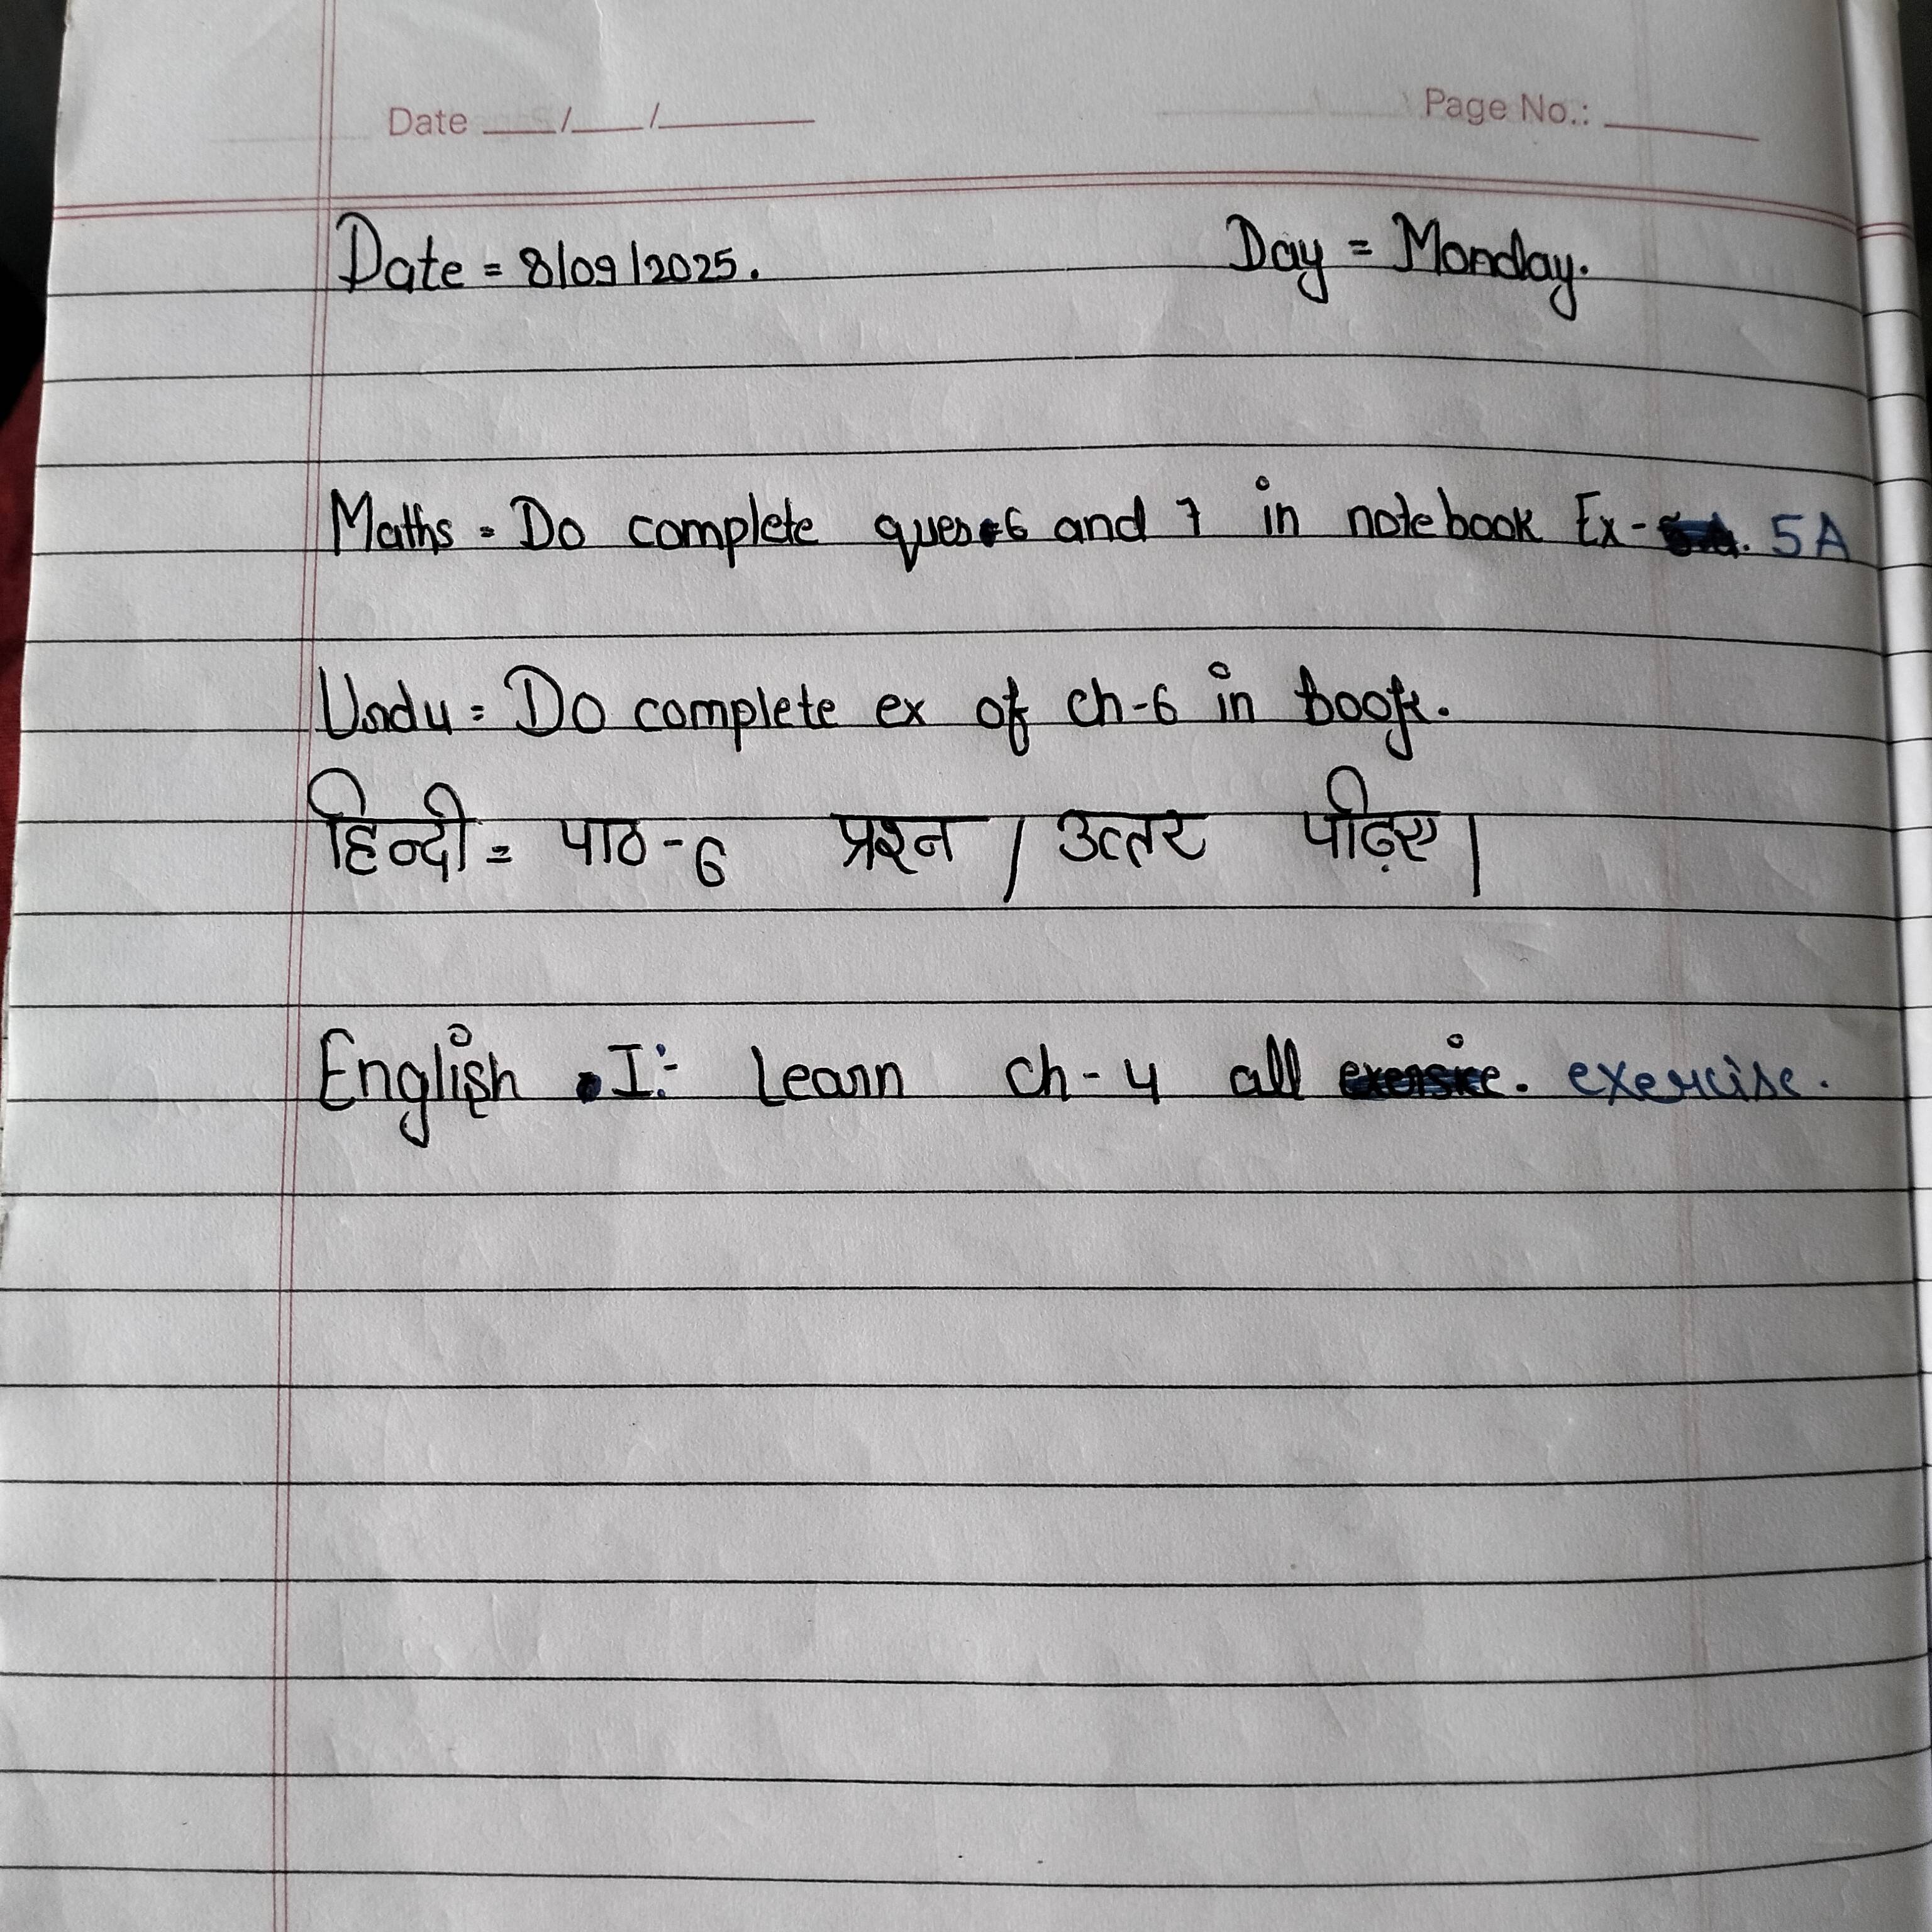 Date ___/___/______ Page No.: ______
Date = 8/09/2025. Day = Monday.
Maths = Do complete ques-6 and 7 in notebook Ex- 5A
Urdu = Do complete ex of ch-6 in book.
हिन्दी = पाठ-6 प्रश्न / उत्तर पढ़िए।
English I:- Learn ch-4 all exercise.